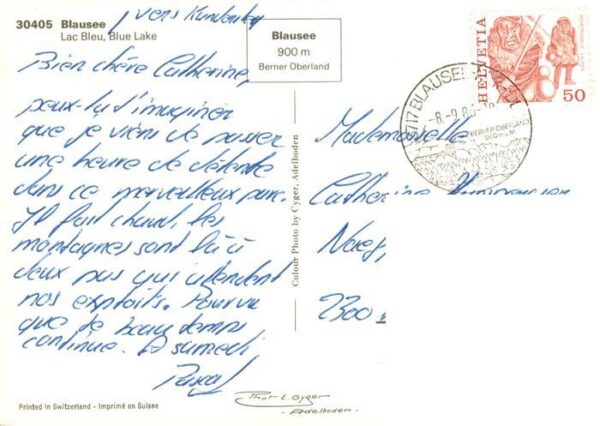 vers Kandersteg
30405 Blausee
Lac Bleu, Blue Lake
Blausee
900 m
Berner Oberland
HELVETIA
50
3717 BLAUSEE
-8.-9.8
BERNER OBERLAND
Bien chère Catherine,
peux-tu t'imaginer
que je viens de passer
une heure de détente
dans ce merveilleux parc.
Il fait chaud, les
montagnes sont là à
deux pas qui attendent
nos exploits. Pourvu
que le beau temps
continue. A samedi
Pascal
Mademoiselle
Catherine
2300
Colour Photo by Gyger, Adelboden
Phot E. Gyger
Adelboden.
Printed in Switzerland - Imprimé en Suisse